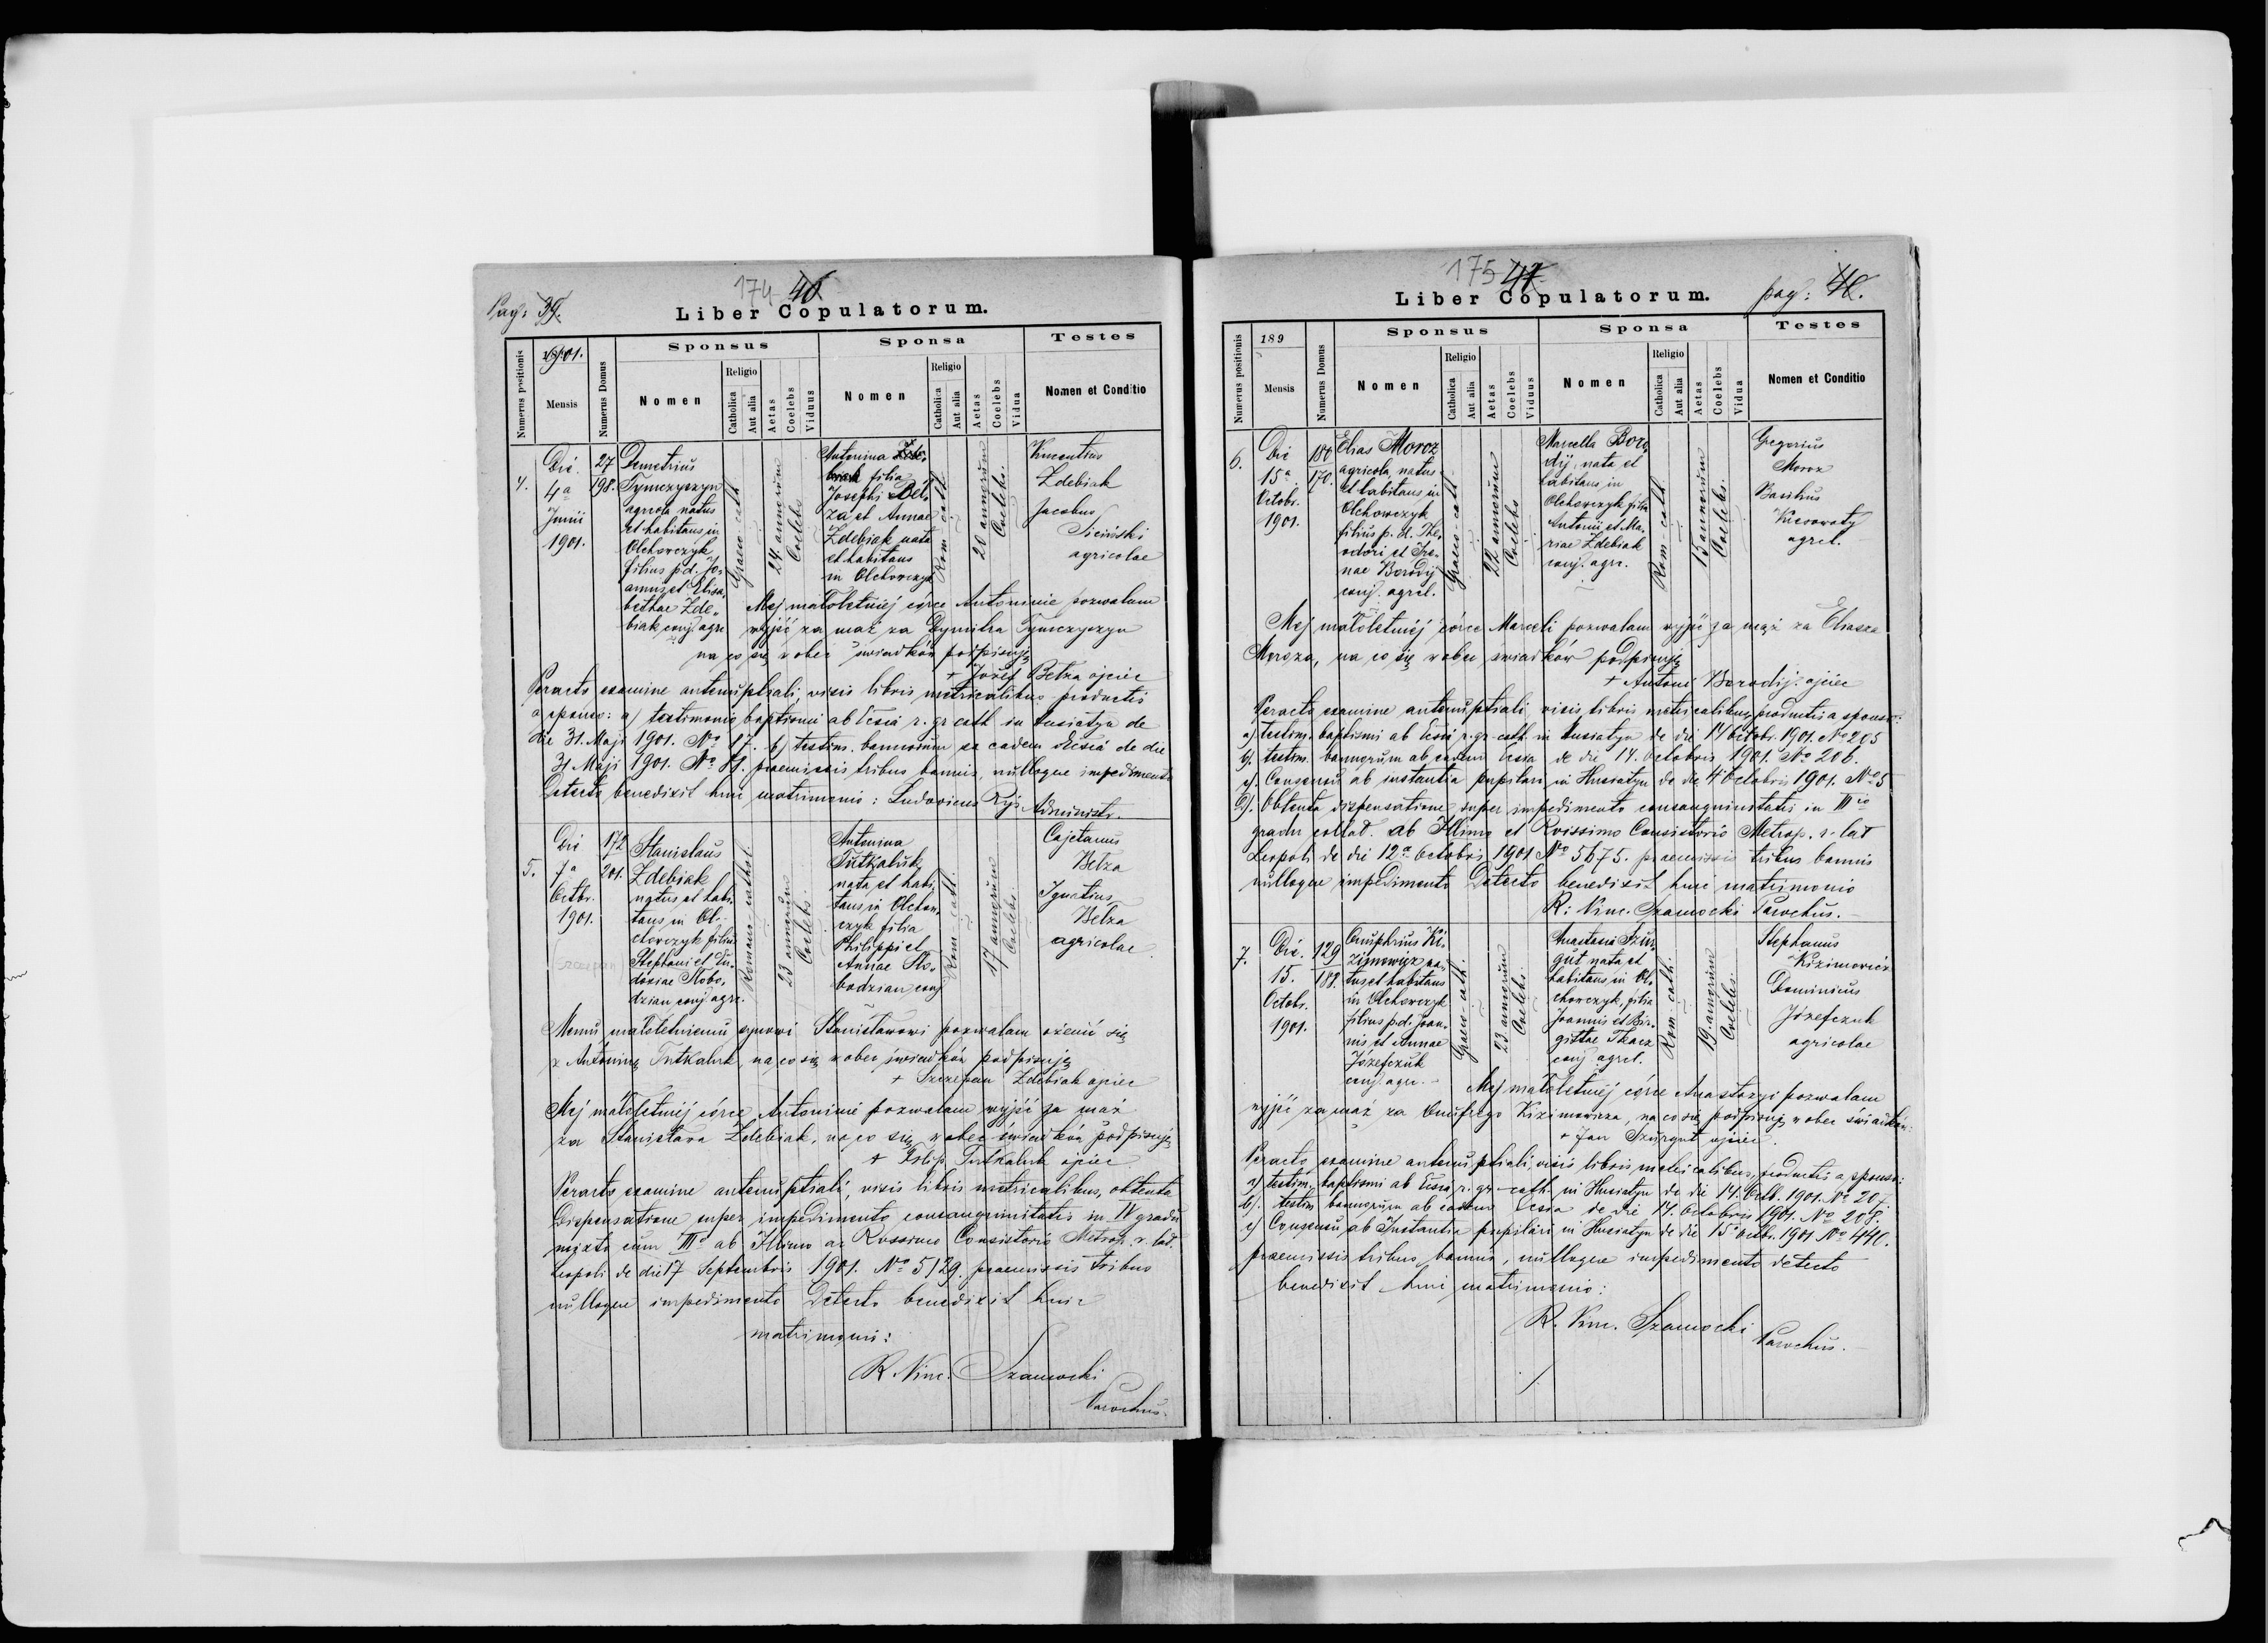 Pag: 39.
174 40
Liber Copulatorum.
Numerus positionis
1901.
Mensis
Numerus Domus
Sponsus
Nomen
Religio
Catholica
Aut alia
Aetas
Coelebs
Viduus
Sponsa
Nomen
Religio
Catholica
Aut alia
Aetas
Coelebs
Vidua
Testes
Nomen et Conditio
4.
Die
4a
Junii
1901.
27
198.
Demetrius
Tymczyszyn
agricola natus
et habitans in
Olchowczyk
filius p.d. Jo-
annis et Elisa-
bethae Zde-
biak conj. agr.
Graeco-cath
24 annorum
Coelebs
Antonina
filia
Josephi Bel-
za et Annae
Zdebiak nata
et habitans
in Olchowczyk
Rom-cath.
20 annorum
Coelebs.
Vincentius
Zdebiak
Jacobus
Siciński
agricolae
Mej małoletniéj córce Antoninie pozwalam
wyjść za mąż za Dymitra Tymczyszyn
na co się wobec świadków podpisuję
+ Józef Belza ojciec
Peracto examine antenuptiali visis libris metricalibus productis
a sponso: a) testimonio baptismi ab Ecsia r. gr. cath. in Husiatyn de
die 31. Maji 1901. No 87. b) testim. bannorum ex eadem Ecsiá de die
31 Maji 1901. No 81. praemissis tribus bannis, nulloque impedimento
Detecto benedixit huic matrimonio: Ludovicus Ryś Administr.
5.
Die
7a
Octbr.
1901.
172
201.
Stanislaus
Zdebiak
natus et habi-
tans in Ol-
chowczyk filius
Stephani et Eu-
doxiae Słobo-
dzian conj. agr.
Szczepan
Romano-cathol.
23 annorum
Coelebs
Antonina
Tutkaluk
nata et habi-
tans in Olchow-
czyk filia
Philippi et
Annae Sło-
bodzian conj
Rom-cath.
17 annorum
Coelebs.
Cajetanus
Belza
Ignatius
Belza
agricolae
Memu małoletniemu synowi Stanisławowi pozwalam ożenić się
z Antoniną Tutkaluk, na co się wobec świadków podpisuję
+ Szczepan Zdebiak ojciec
Mej małoletniéj córce Antoninie pozwalam wyjść za mąż
za Stanisława Zdebiak, na co się wobec świadków podpisuję
+ Filip Tutkaluk ojciec
Peracto examine antenuptiali, visis libris metricalibus, obtenta
Dispensatione super impedimento consanguinitatis in IV gradu
mixto cum IIIo ab Illimo ac Rvssimo Consistorio Metrop. r. lat.
Leopoli de die 17 Septembris 1901. No 5129. praemissis tribus
nulloque impedimento Detecto benedixit huic
matrimonii:
R. Vinc. Szamocki
Parochus.
175 41
Liber Copulatorum.
pag: 40.
Numerus positionis
189
Mensis
Numerus Domus
Sponsus
Nomen
Religio
Catholica
Aut alia
Aetas
Coelebs
Viduus
Sponsa
Nomen
Religio
Catholica
Aut alia
Aetas
Coelebs
Vidua
Testes
Nomen et Conditio
6.
Die
15a
Octobr.
1901.
186
170.
Elias Moroz
agricola, natus
et habitans in
Olchowczyk
filius p. d. The-
odori et Ire-
nae Borodij
conj. agrl.
Graeco-cath
22 annorum
Coelebs
Marcella Boro-
dij, nata et
habitans in
Olchowczyk filia
Antonii et Ma-
riae Zdebiak
conj. agr.
Rom-cath
15 annorum
Coelebs.
Gregorius
Moroz
Basilius
agrcl.
Mej małoletniéj córce Marceli pozwalam wyjść za mąż za Eliasza
Moroza, na co się wobec świadków podpisuję
+ Antoni Borodij ojciec
Peracto examine antenuptiali, visis libris metricalibus, productis a sponso:
a) testim. baptismi ab Ecsia r. gr. cath. in Husiatyn de die 14 Octobr. 1901. No 205
b). testim. bannorum ab eadem Ecsia de die 14. Octobris 1901. No 206.
c). Consensu ab instantia pupilari in Husiatyn de die 4 Octobris 1901. No 5
D). Obtenta dispensatione super impedimento consanguinitatis in IIIio
gradu collat. ab Illimo et Rvissimo Consistorio Metrop. r. lat
Leopoli de die 12a Octobris 1901 No 5675. praemissis tribus bannis
nulloque impedimento Detecto benedixit huic matrimonio
R: Vinc. Szamocki Parochus.
7.
Die
15.
Octobr.
1901
129
188.
Onuphrius Ki-
zimowicz na-
tus et habitans
in Olchowczyk
filius p.d. Joan-
nis et Annae
Józefczuk
conj. agr.
Graeco-cath.
23 annorum
Coelebs.
Anastasia Szur-
gut nata et
habitans in Ol-
chowczyk, filia
Joannis et Bir-
gittae Tkacz
conj. agrcl.
Rom-cath.
19 annorum
Coelebs.
Stephanus
Kizimowicz
Dominicus
Józefczuk
agricolae
Mej małoletniéj córce Anastazyi pozwalam
wyjść za mąż za Onufrego Kizimowicza, na co się podpisuję wobec świadków:
+ Jan Szurgut ojciec.
Peracto examine antenuptiali, visis libris metricalibus, productis a sponso:
a) testim. baptismi ab Ecsia r. gr-cath. in Husiatyn de die 14. Octb. 1901. No 207.
b). testim bannorum ab eadem Ecsia de die 14. Octobris 1901. No 208.
c) Consensu ab Instantia pupilari in Husiatyn de die 15a Octbr. 1901 No 440.
praemissis tribus bannis, nulloque impedimento detecto
benedixit huic matrimonio:
R. Vinc. Szamocki
Parochus.